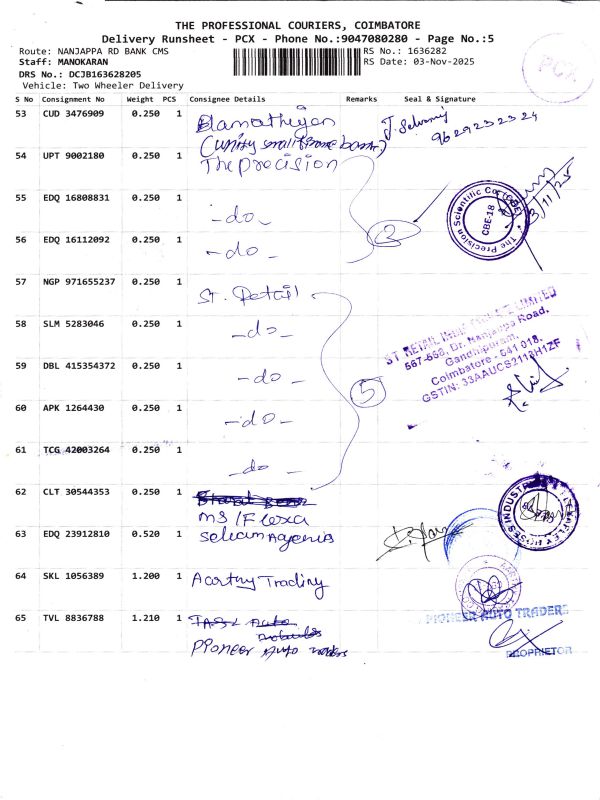 THE PROFESSIONAL COURIERS, COIMBATORE
Delivery Runsheet - PCX - Phone No.:9047080280 - Page No.:5
Route: NANJAPPA RD BANK CMS
RS No.: 1636282
Staff: MANOKARAN
RS Date: 03-Nov-2025
DRS No.: DCJB163628205
Vehicle: Two Wheeler Delivery
PCX
S No Consignment No Weight PCS Consignee Details Remarks Seal & Signature
53 CUD 3476909 0.250 1 Elamathiyan J. Selvamij
(unity small finance bank) 9629232324
54 UPT 9002180 0.250 1 The precision
55 EDQ 16808831 0.250 1 -do- 3/11/25
The Precision Scientific Co (CBE)
CBE-18
56 EDQ 16112092 0.250 1 -do- 3
57 NGP 971655237 0.250 1 ST. Retail
58 SLM 5283046 0.250 1 -do-
ST RETAIL LIMITED
567-568, Dr. Nanjappa Road,
Gandhipuram,
Coimbatore - 641 018.
GSTIN: 33AAUCS2118H1ZF
59 DBL 415354372 0.250 1 -do- 5
60 APK 1264430 0.250 1 -do-
61 TCG 42003264 0.250 1 -do-
62 CLT 30544353 0.250 1 Bharat
MS/Flexa
63 EDQ 23912810 0.520 1 Selvam Agencies
64 SKL 1056389 1.200 1 Aarthy Trading
65 TVL 8836788 1.210 1 Auto
Pioneer Auto traders
PIONEER AUTO TRADERS
PROPRIETOR